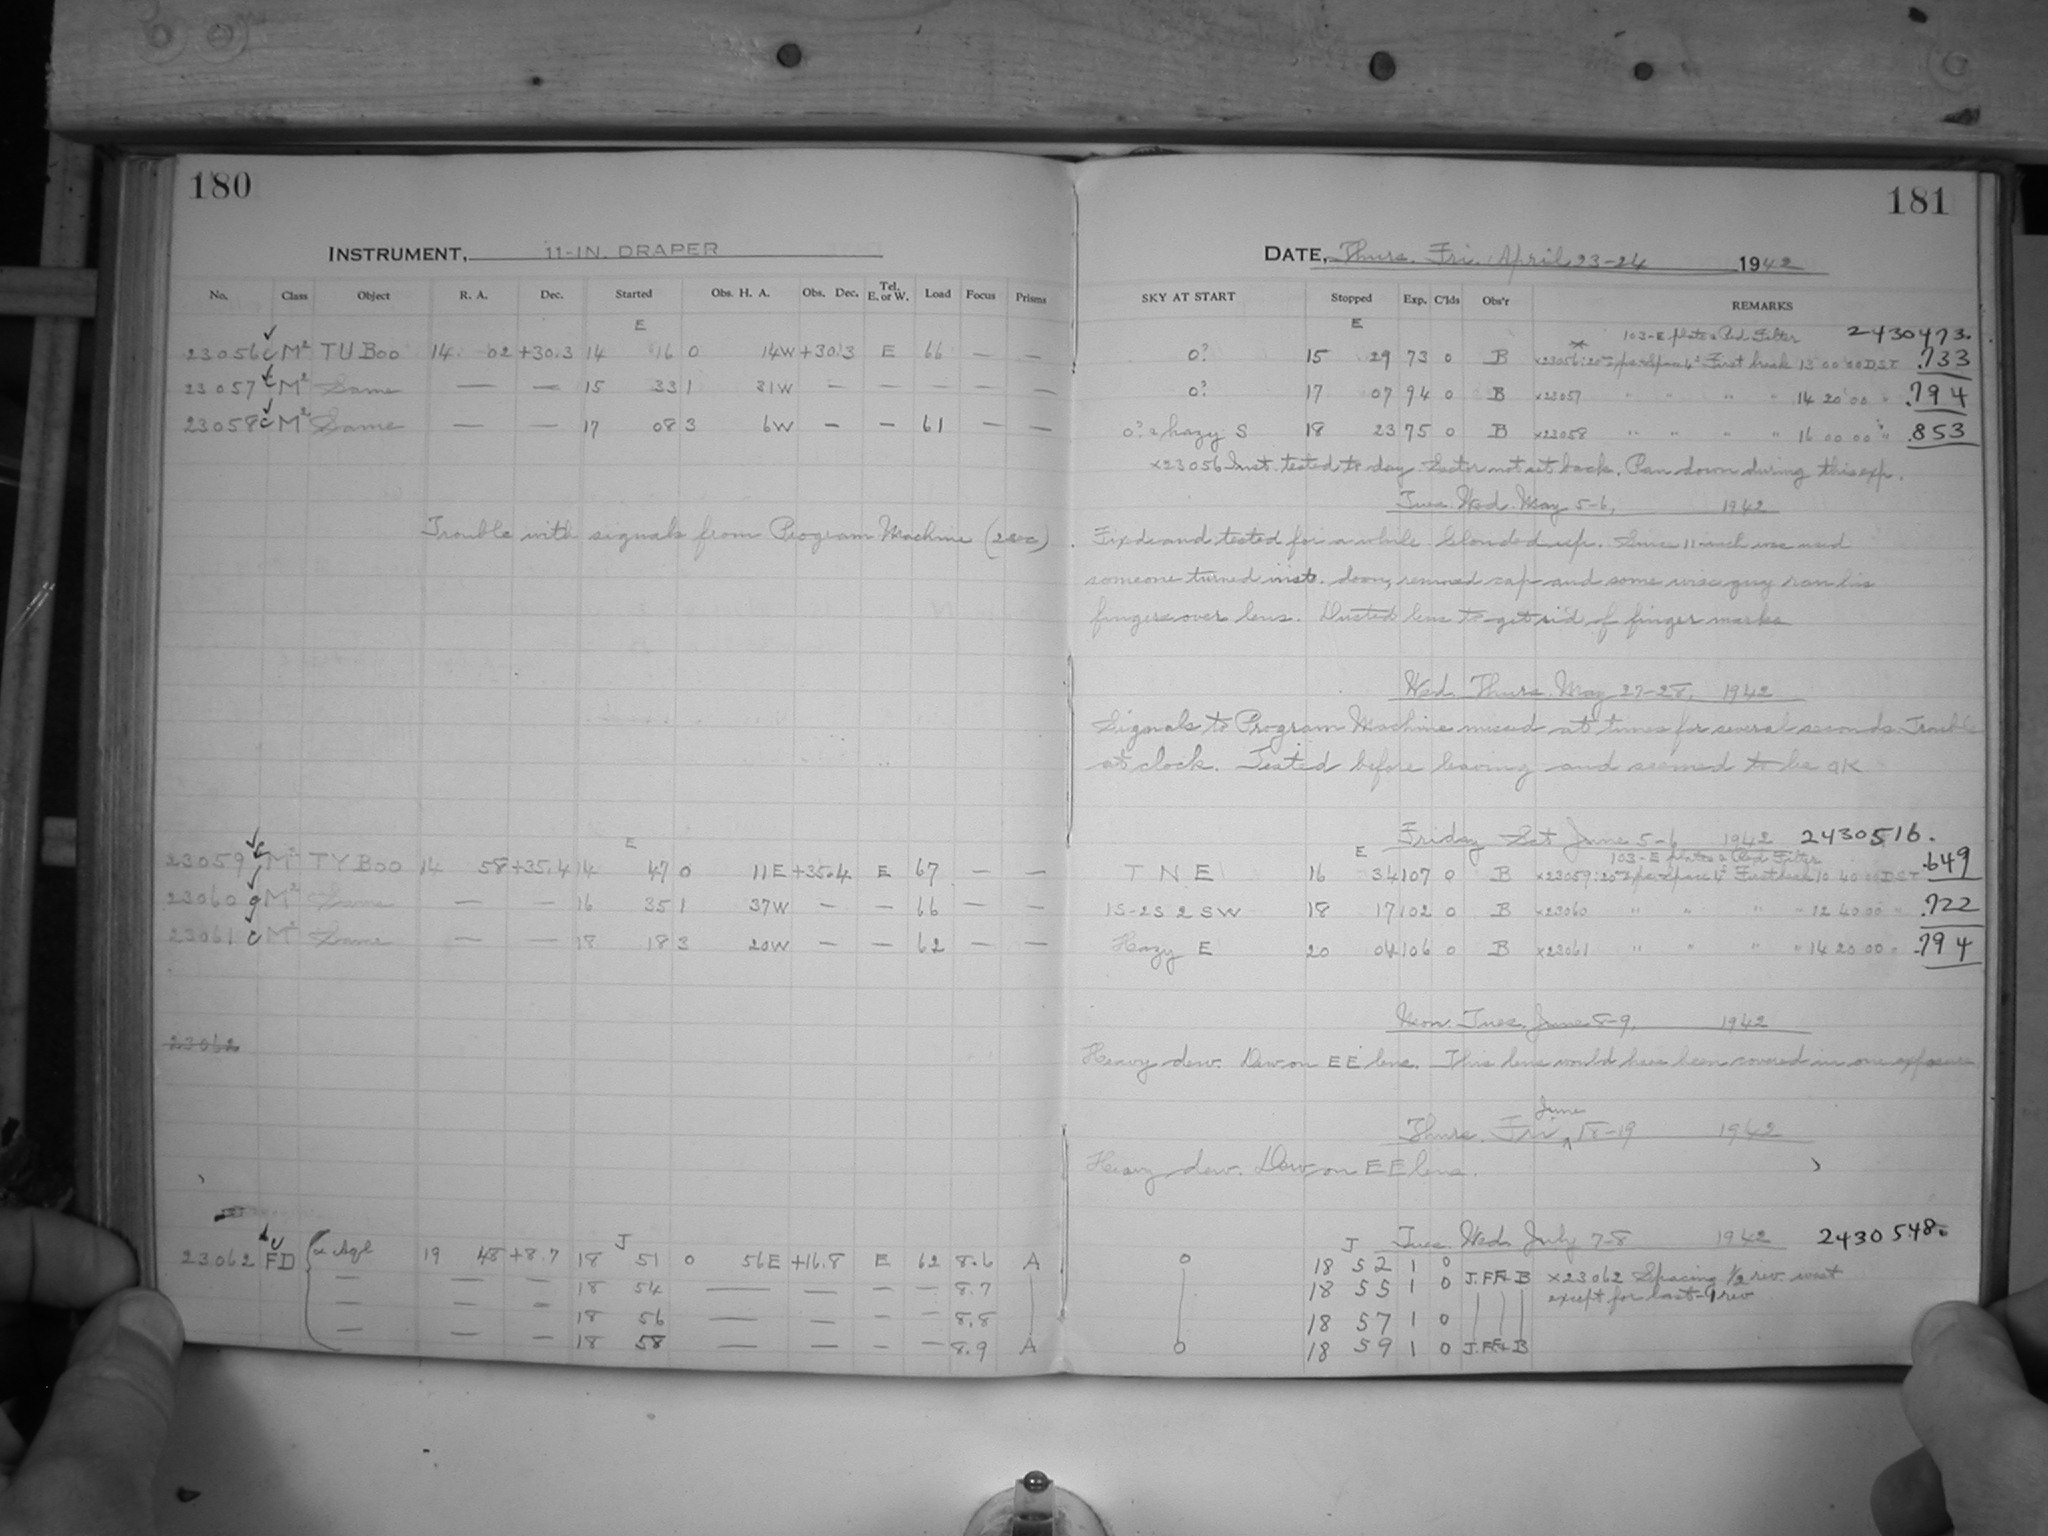 180
INSTRUMENT, 11-IN. DRAPER
No. Class Object R. A. Dec. Started Obs. H. A. Obs. Dec. Tel. E. or W. Load Focus Prisms
E
23056 c M² TU Boo 14 02 +30.3 14 16 0 14W +30.3 E 66 — —
23057 c M² Same — — 15 33 1 31W — — — — —
23058 c M² Same — — 17 08 3 6W — — 61 — —
Trouble with signals from Program Machine (2 sec)
E
23059 c M² TY Boo 14 58 +35.4 14 47 0 11E +35.4 E 67 — —
23060 g M² Same — — 16 35 1 37W — — 66 — —
23061 c M² Same — — 18 18 3 20W — — 62 — —
23062
J
23062 FD α Aql 19 48 +8.7 18 51 0 56E +16.8 E 62 8.6 A
— — — 18 54 — — — — 8.7
— — — 18 56 — — — — 8.8
— — — 18 58 — — — — 8.9 A
181
DATE, Thurs. Fri. April 23-24 1942
SKY AT START Stopped Exp. C'lds Obs'r REMARKS
E
103-E plates Red Filter 2430473.
0? 15 29 73 0 B x23056: First break 13 00 00 DST .733
0? 17 07 94 0 B x23057 " " " " 14 20 00 " .794
0? & hazy S 18 23 75 0 B x23058 " " " " 16 00 00 " .853
x23056 Inst. tested to day. Sector not set back. Pan down during this exp.
Tues. Wed. May 5-6, 1942
Fixed and tested for a while Clouded up. Since 11-inch was used
someone turned inst. down, removed cap and some wise guy ran his
fingers over lens. Dusted lens to get rid of finger marks
Wed. Thurs. May 27-28, 1942
Signals to Program Machine missed at times for several seconds Trouble
at clock. Tested before leaving and seemed to be OK
Friday Sat June 5-6 1942 2430516.
E
103-E plates Red Filter
T N E 16 34 107 0 B x23059: First break 10 40 00 DST .649
1S-2S 2 SW 18 17 102 0 B x23060 " " " " 12 40 00 " .722
Hazy E 20 04 106 0 B x23061 " " " " 14 20 00 " .794
Mon. Tues. June 8-9, 1942
Heavy dew. Dew on EE lens. This lens would have been covered in one exposure
June
Thurs. Fri ^ 18-19 1942
Heavy dew. Dew on EE lens.
J Tues. Wed. July 7-8 1942 2430548.
0 18 52 1 0
18 55 1 0 J.FF+ B x23062 Spacing 1/2 rev. west
except for last-1 rev
18 57 1 0
0 18 59 1 0 J.FF+ B